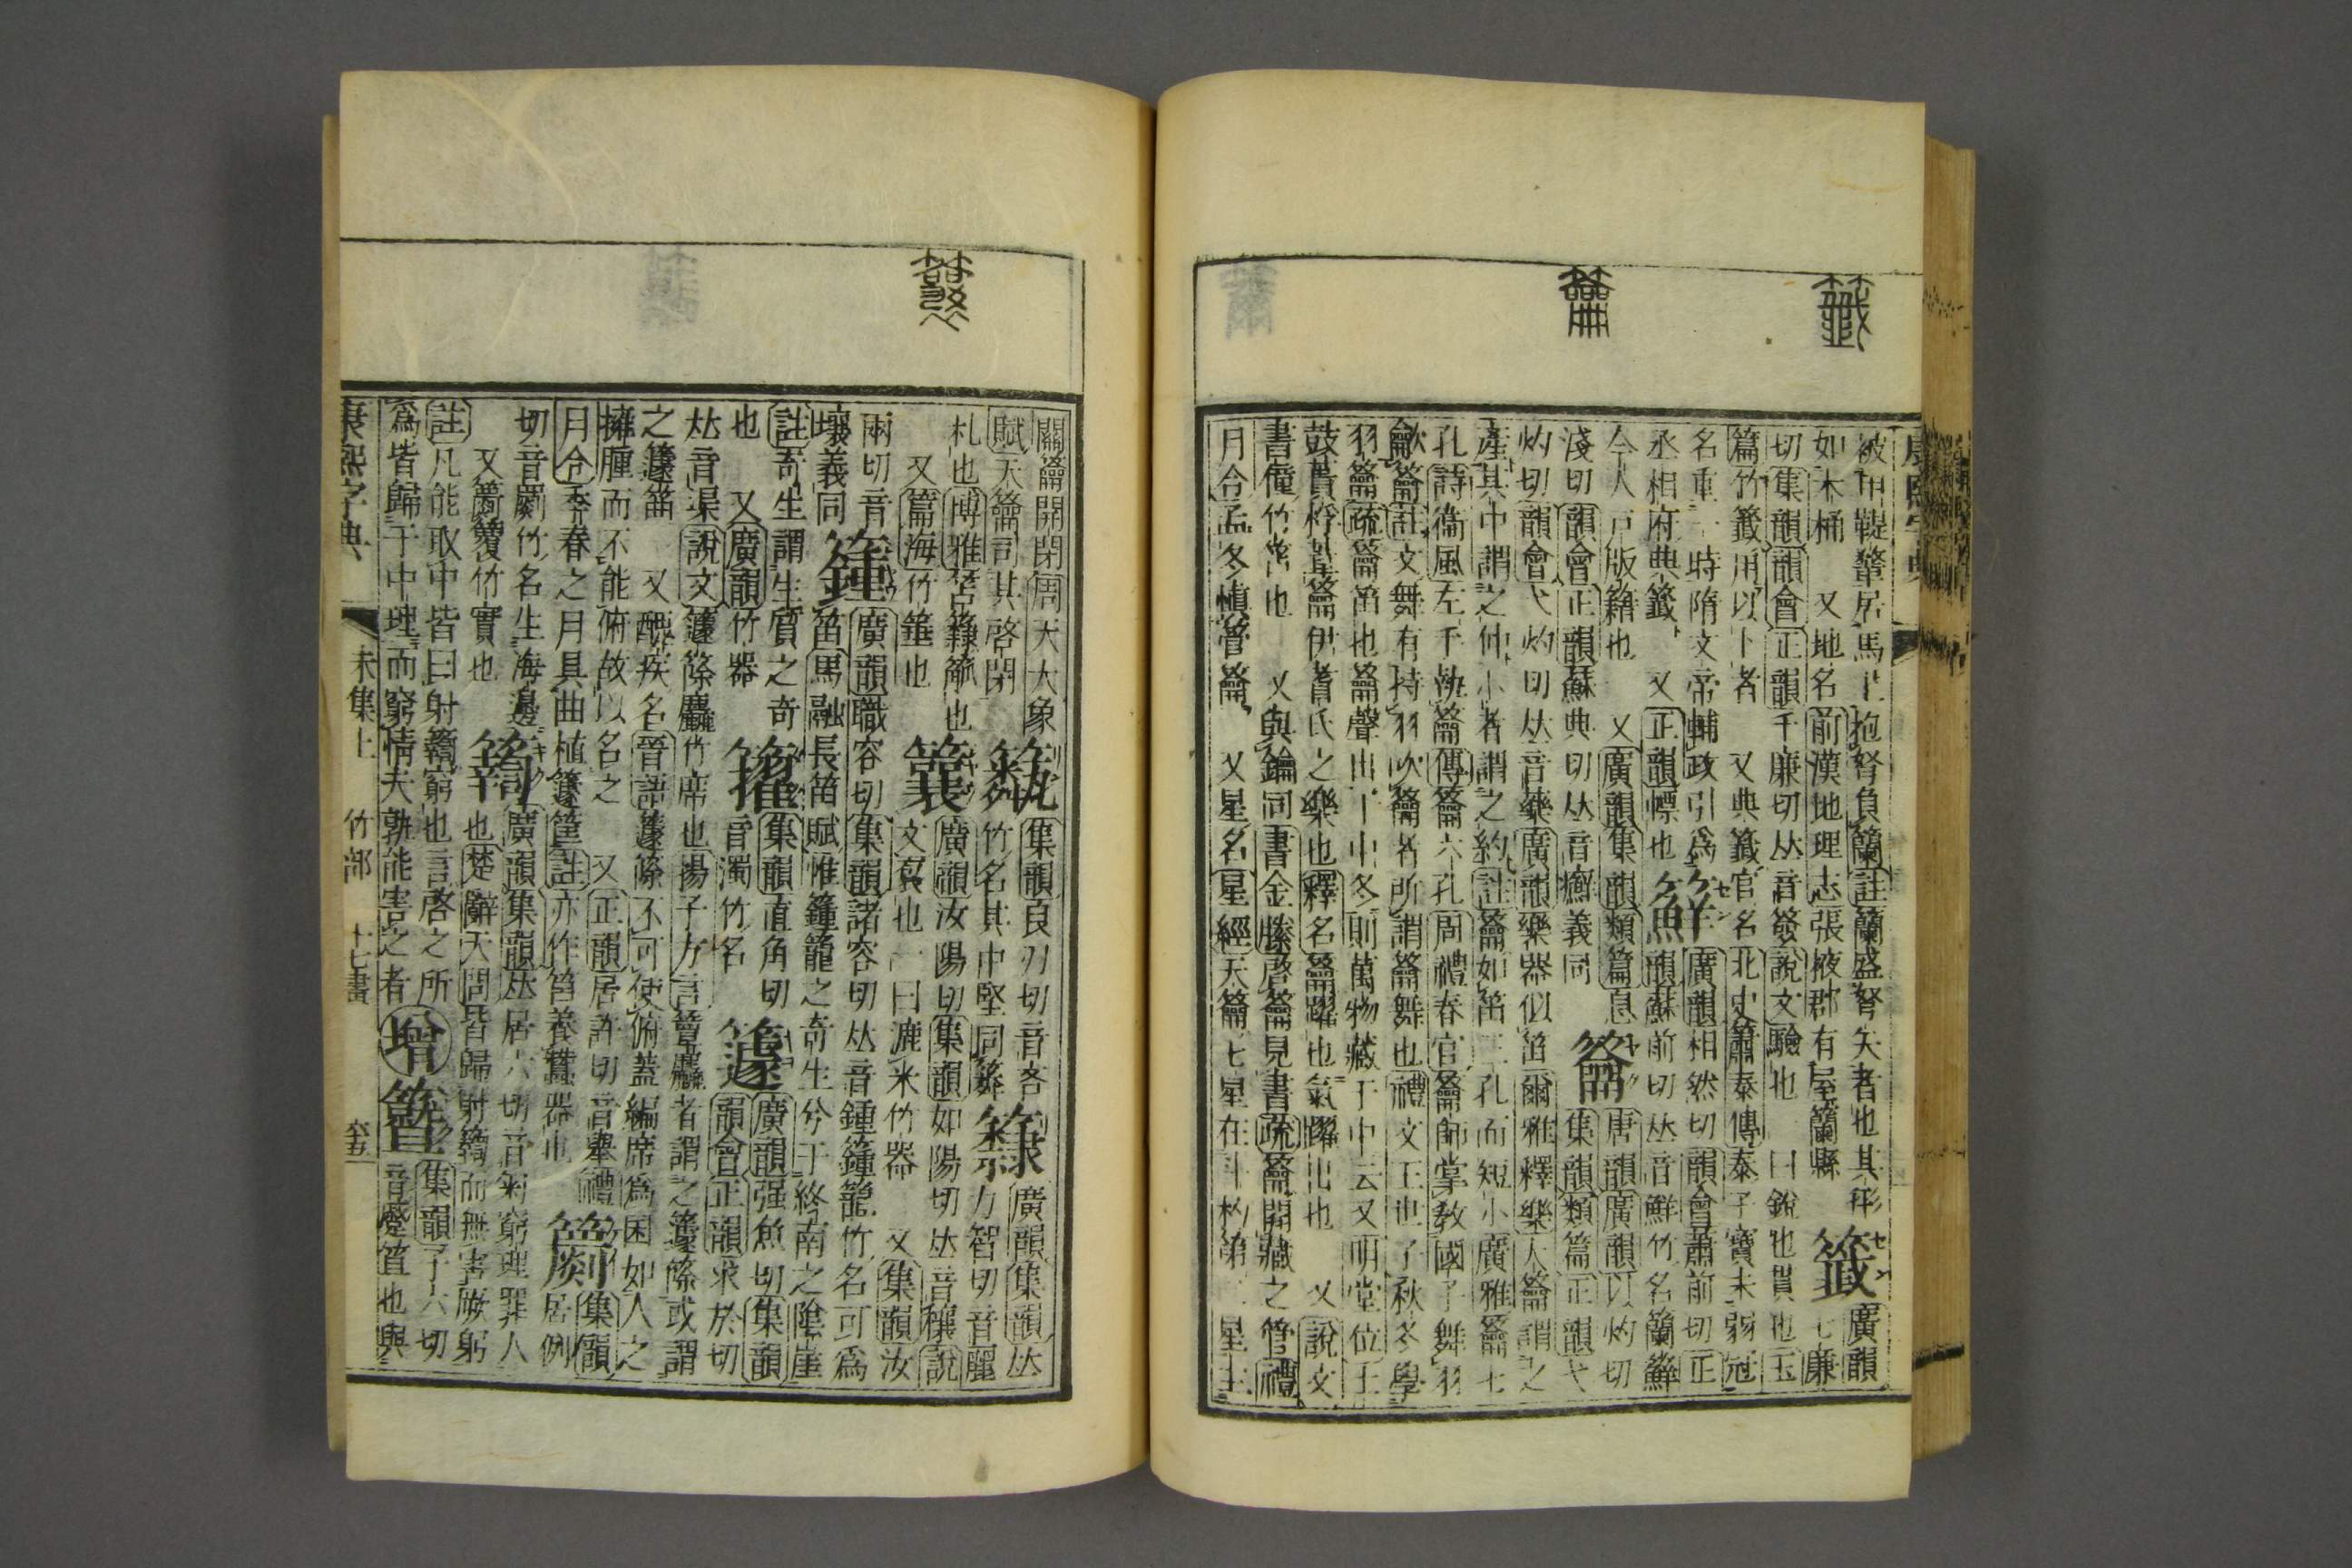 康熙字典
被甲鞮鞪居馬上抱弩負籣註籣盛弩矢者也其形
如木桶 又地名前漢地理志張掖郡有屋籣縣
籤
廣韻
七廉
切集韻韻會正韻千廉切𠀤音僉說文驗也一曰銳也貫也玉
篇竹籤用以卜者 又典籤官名北史蕭泰傳泰子寶未弱冠
名重一時隋文帝輔政引爲
丞相府典籤 又正韻幖也
廣韻相然切韻會蕭前切正
韻蘇前切𠀤音鮮竹名籣
今人戶版籍也 又廣韻集韻類篇息
淺切韻會正韻蘇典切𠀤音癬義同
籥
唐韻廣韻以灼切
集韻類篇正韻弋
灼切韻會弋灼切𠀤音藥廣韻樂器似笛爾雅釋樂大籥謂之
產其中謂之仲小者謂之約註籥如笛三孔而短小廣雅籥七
孔詩衞風左手執籥傳籥六孔周禮春官籥師掌敎國子舞羽
龡籥註文舞有持羽吹籥者所謂籥舞也禮文王世子秋冬學
羽籥疏籥笛也籥聲出于中冬則萬物藏于中云又明堂位土
鼓蕢桴葦籥伊耆氏之樂也釋名籥躍也氣躍出也 又說文
書僮竹笘也 又與鑰同書金縢啓籥見書疏籥開藏之管禮
月令孟冬愼管籥 又星名星經天籥七星在斗杓第二星主
關籥開閉周天大象
賦天籥司其啓閉
集韻良刃切音吝
竹名其中堅同
廣韻集韻𠀤
力智切音麗
札也博雅笘籥也
又篇海竹箠也
廣韻汝陽切集韻如陽切𠀤音穰說
文裒也一曰漉米竹器 又集韻汝
兩切音
壤義同
籦
廣韻職容切集韻諸容切𠀤音鍾籦籠竹名可爲
笛馬融長笛賦惟籦籠之奇生兮于終南之陰崖
註奇生謂生質之奇
也 又廣韻竹器
籗
集韻直角切
音濁竹名
籧
廣韻强魚切集韻
韻會正韻求於切
𠀤音渠說文籧篨麤竹席也揚子方言簟麤者謂之籧篨或謂
之籧笛 又醜疾名晉語籧篨不可使俯蓋編席爲囷如人之
擁腫而不能俯故以名之 又正韻居許切音舉禮
月令季春之月具曲植籧筐註亦作筥養蠶器也
集韻
居例
切音罽竹名生海邊
竹實也
廣韻集韻𠀤居六切音匊窮理罪人
也楚辭天問皆歸射而無害厥躬
註凡能取中皆曰射窮也言啓之所
爲皆歸于中理而窮情夫孰能害之者
增
集韻子六切
音蹙笡也與
康熙字典 未集上 竹部 十七畫